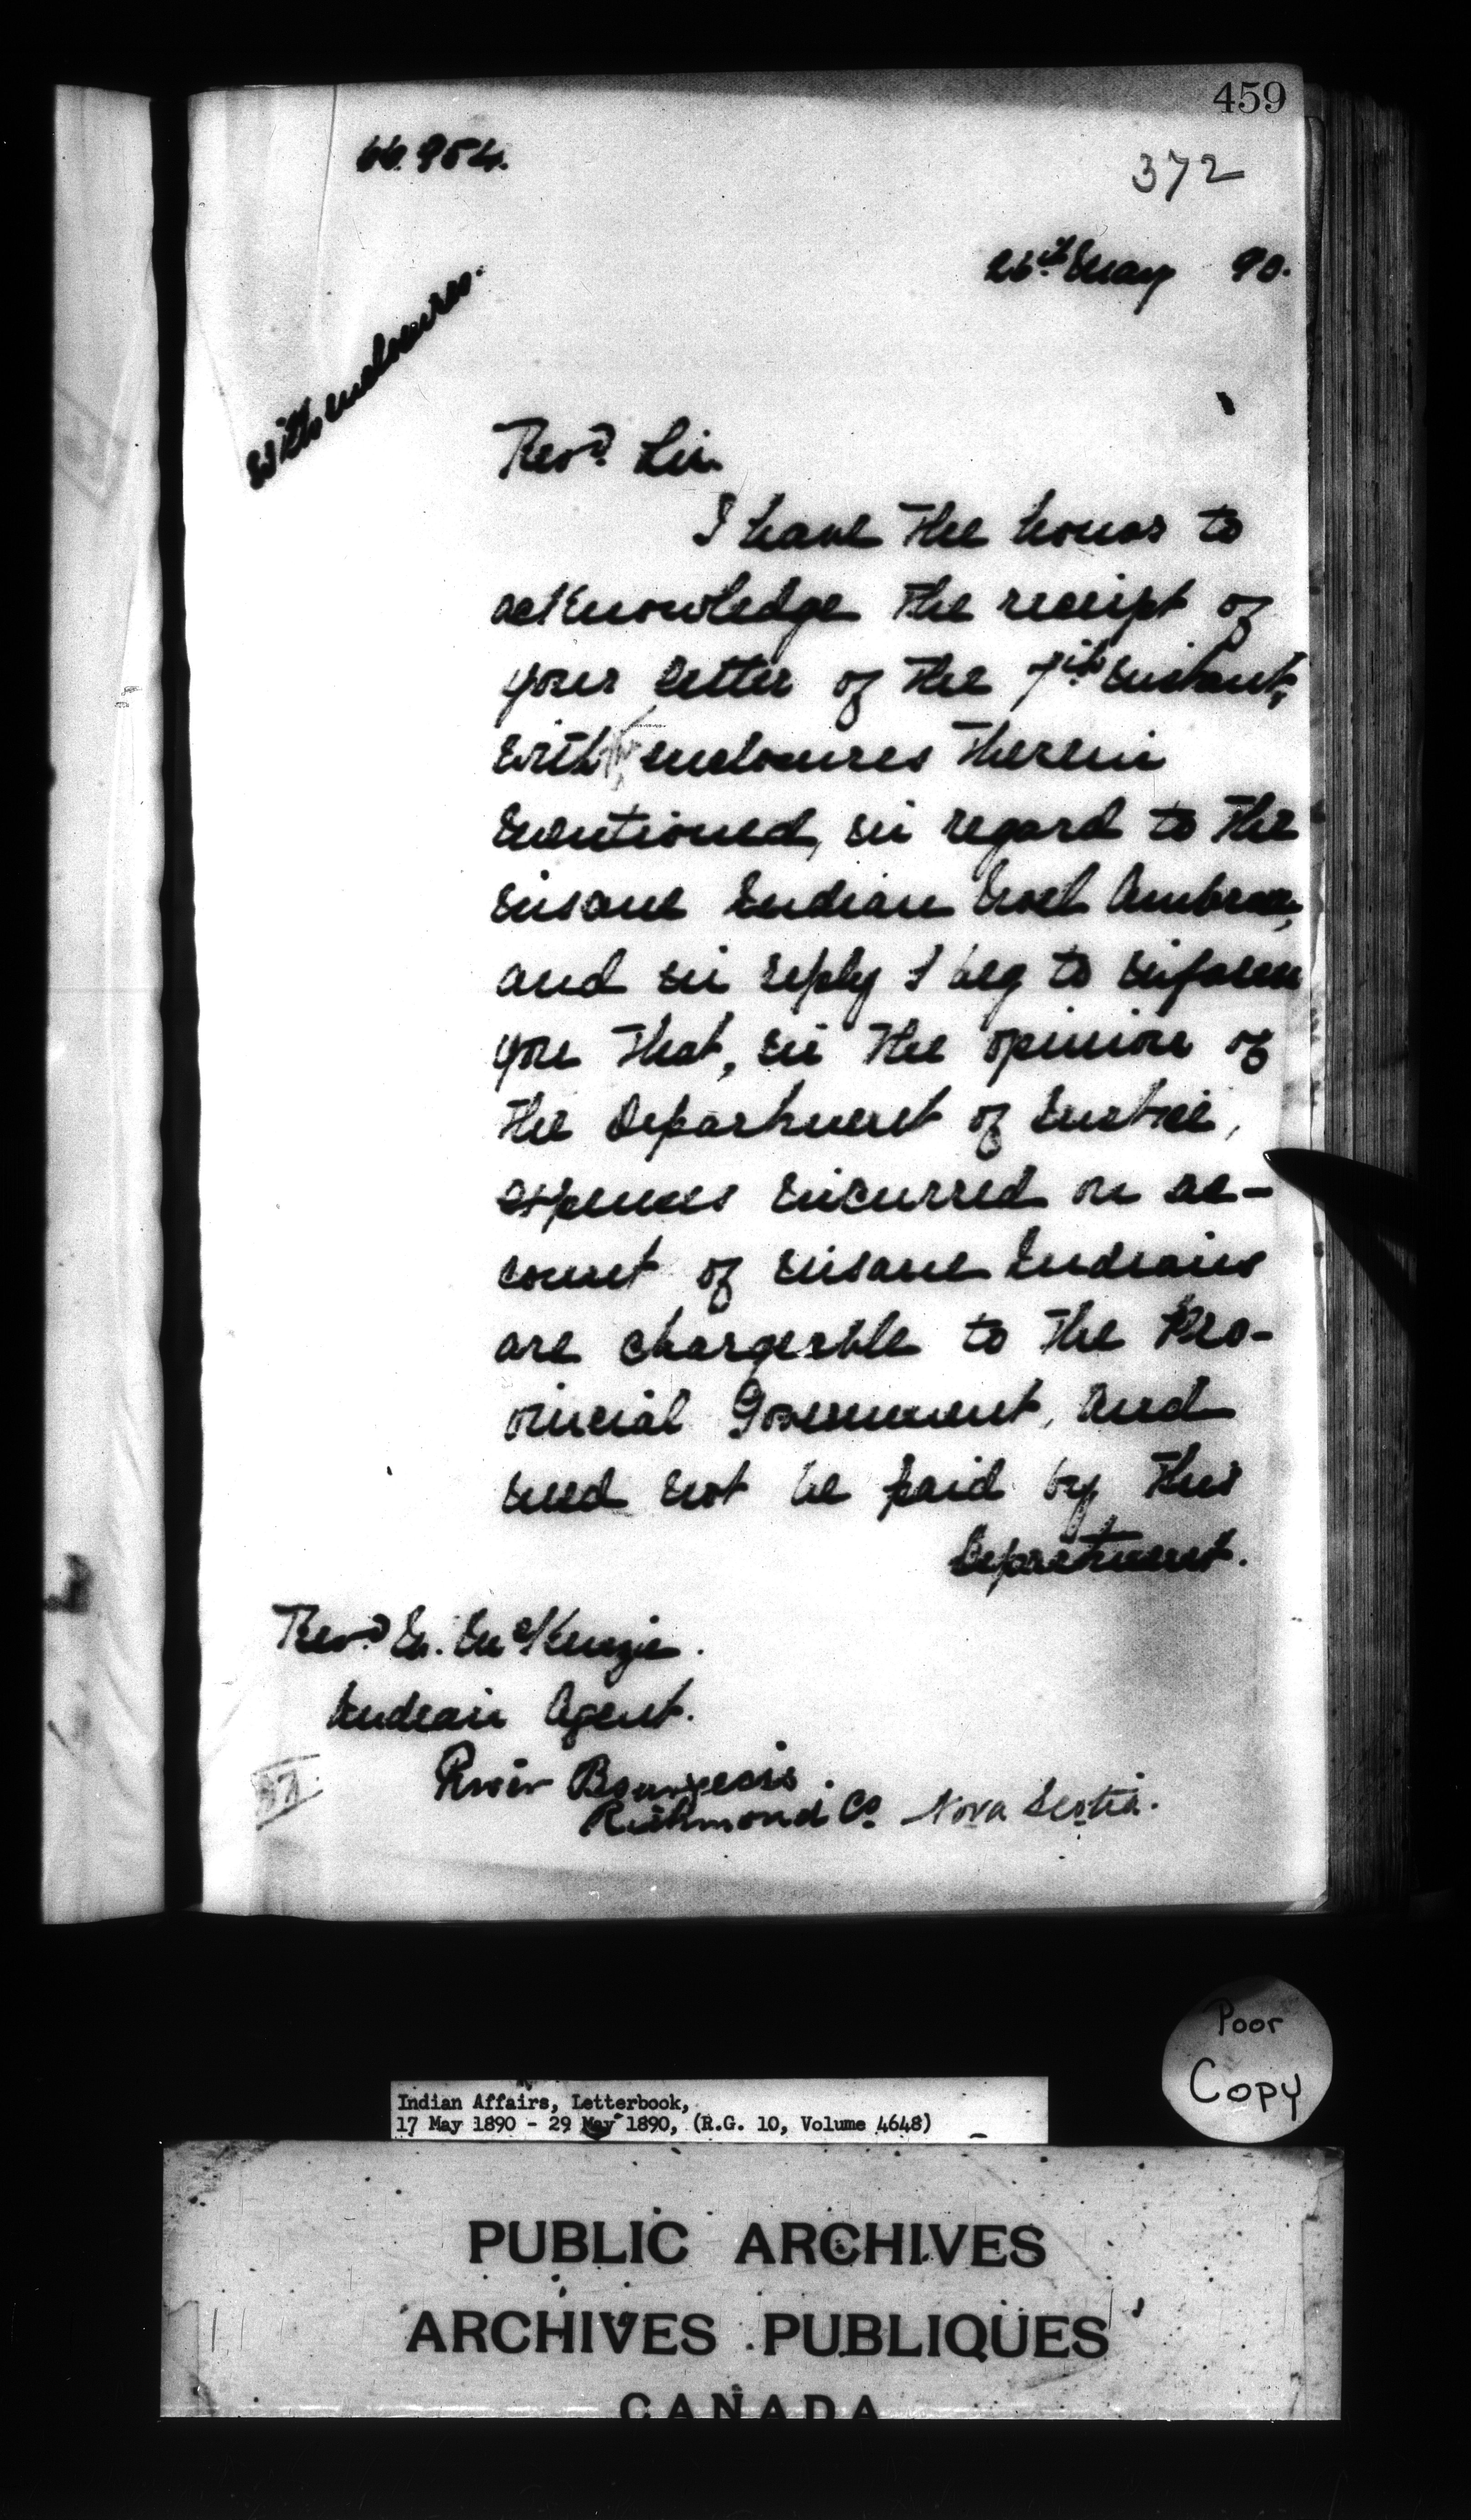 459
66.954.
372
26th May 90.
With enclosures.
Revd. Sir.
I have the honor to
acknowledge the receipt of
your letter of the 7th instant,
with enclosures therein
mentioned, in regard to the
insane Indian Noel Ambrose,
and in reply I beg to inform
you that, in the opinion of
the Department of Justice,
expenses incurred on ac-
count of insane Indians
are chargeable to the Pro-
vincial Government, and
need not be paid by this
Department.
Revd. E. McKenzie.
Indian Agent.
River Bourgeois.
Richmond Co. Nova Scotia.
Poor
Copy
Indian Affairs, Letterbook,
17 May 1890 - 29 May 1890, (R.G. 10, Volume 4648)
PUBLIC ARCHIVES
ARCHIVES PUBLIQUES
CANADA